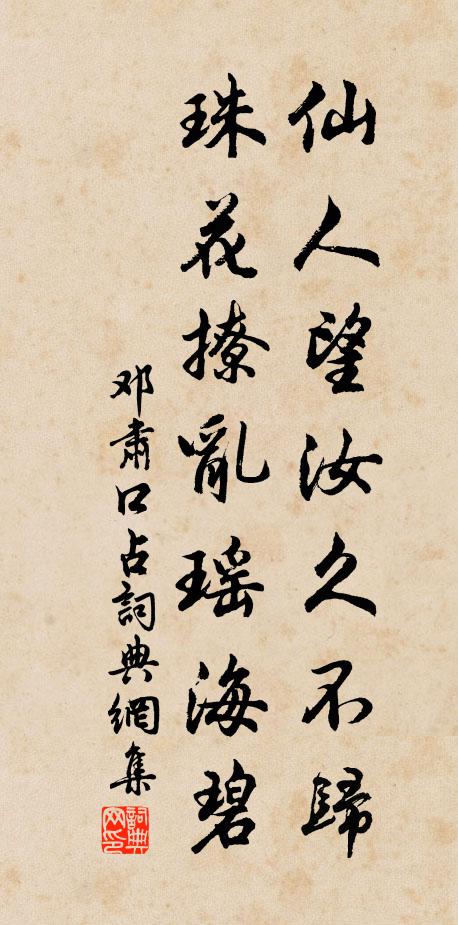 仙人望汝久不歸
珠花撩亂瑶海碧
邓肅口占詞典網集
詞典网印